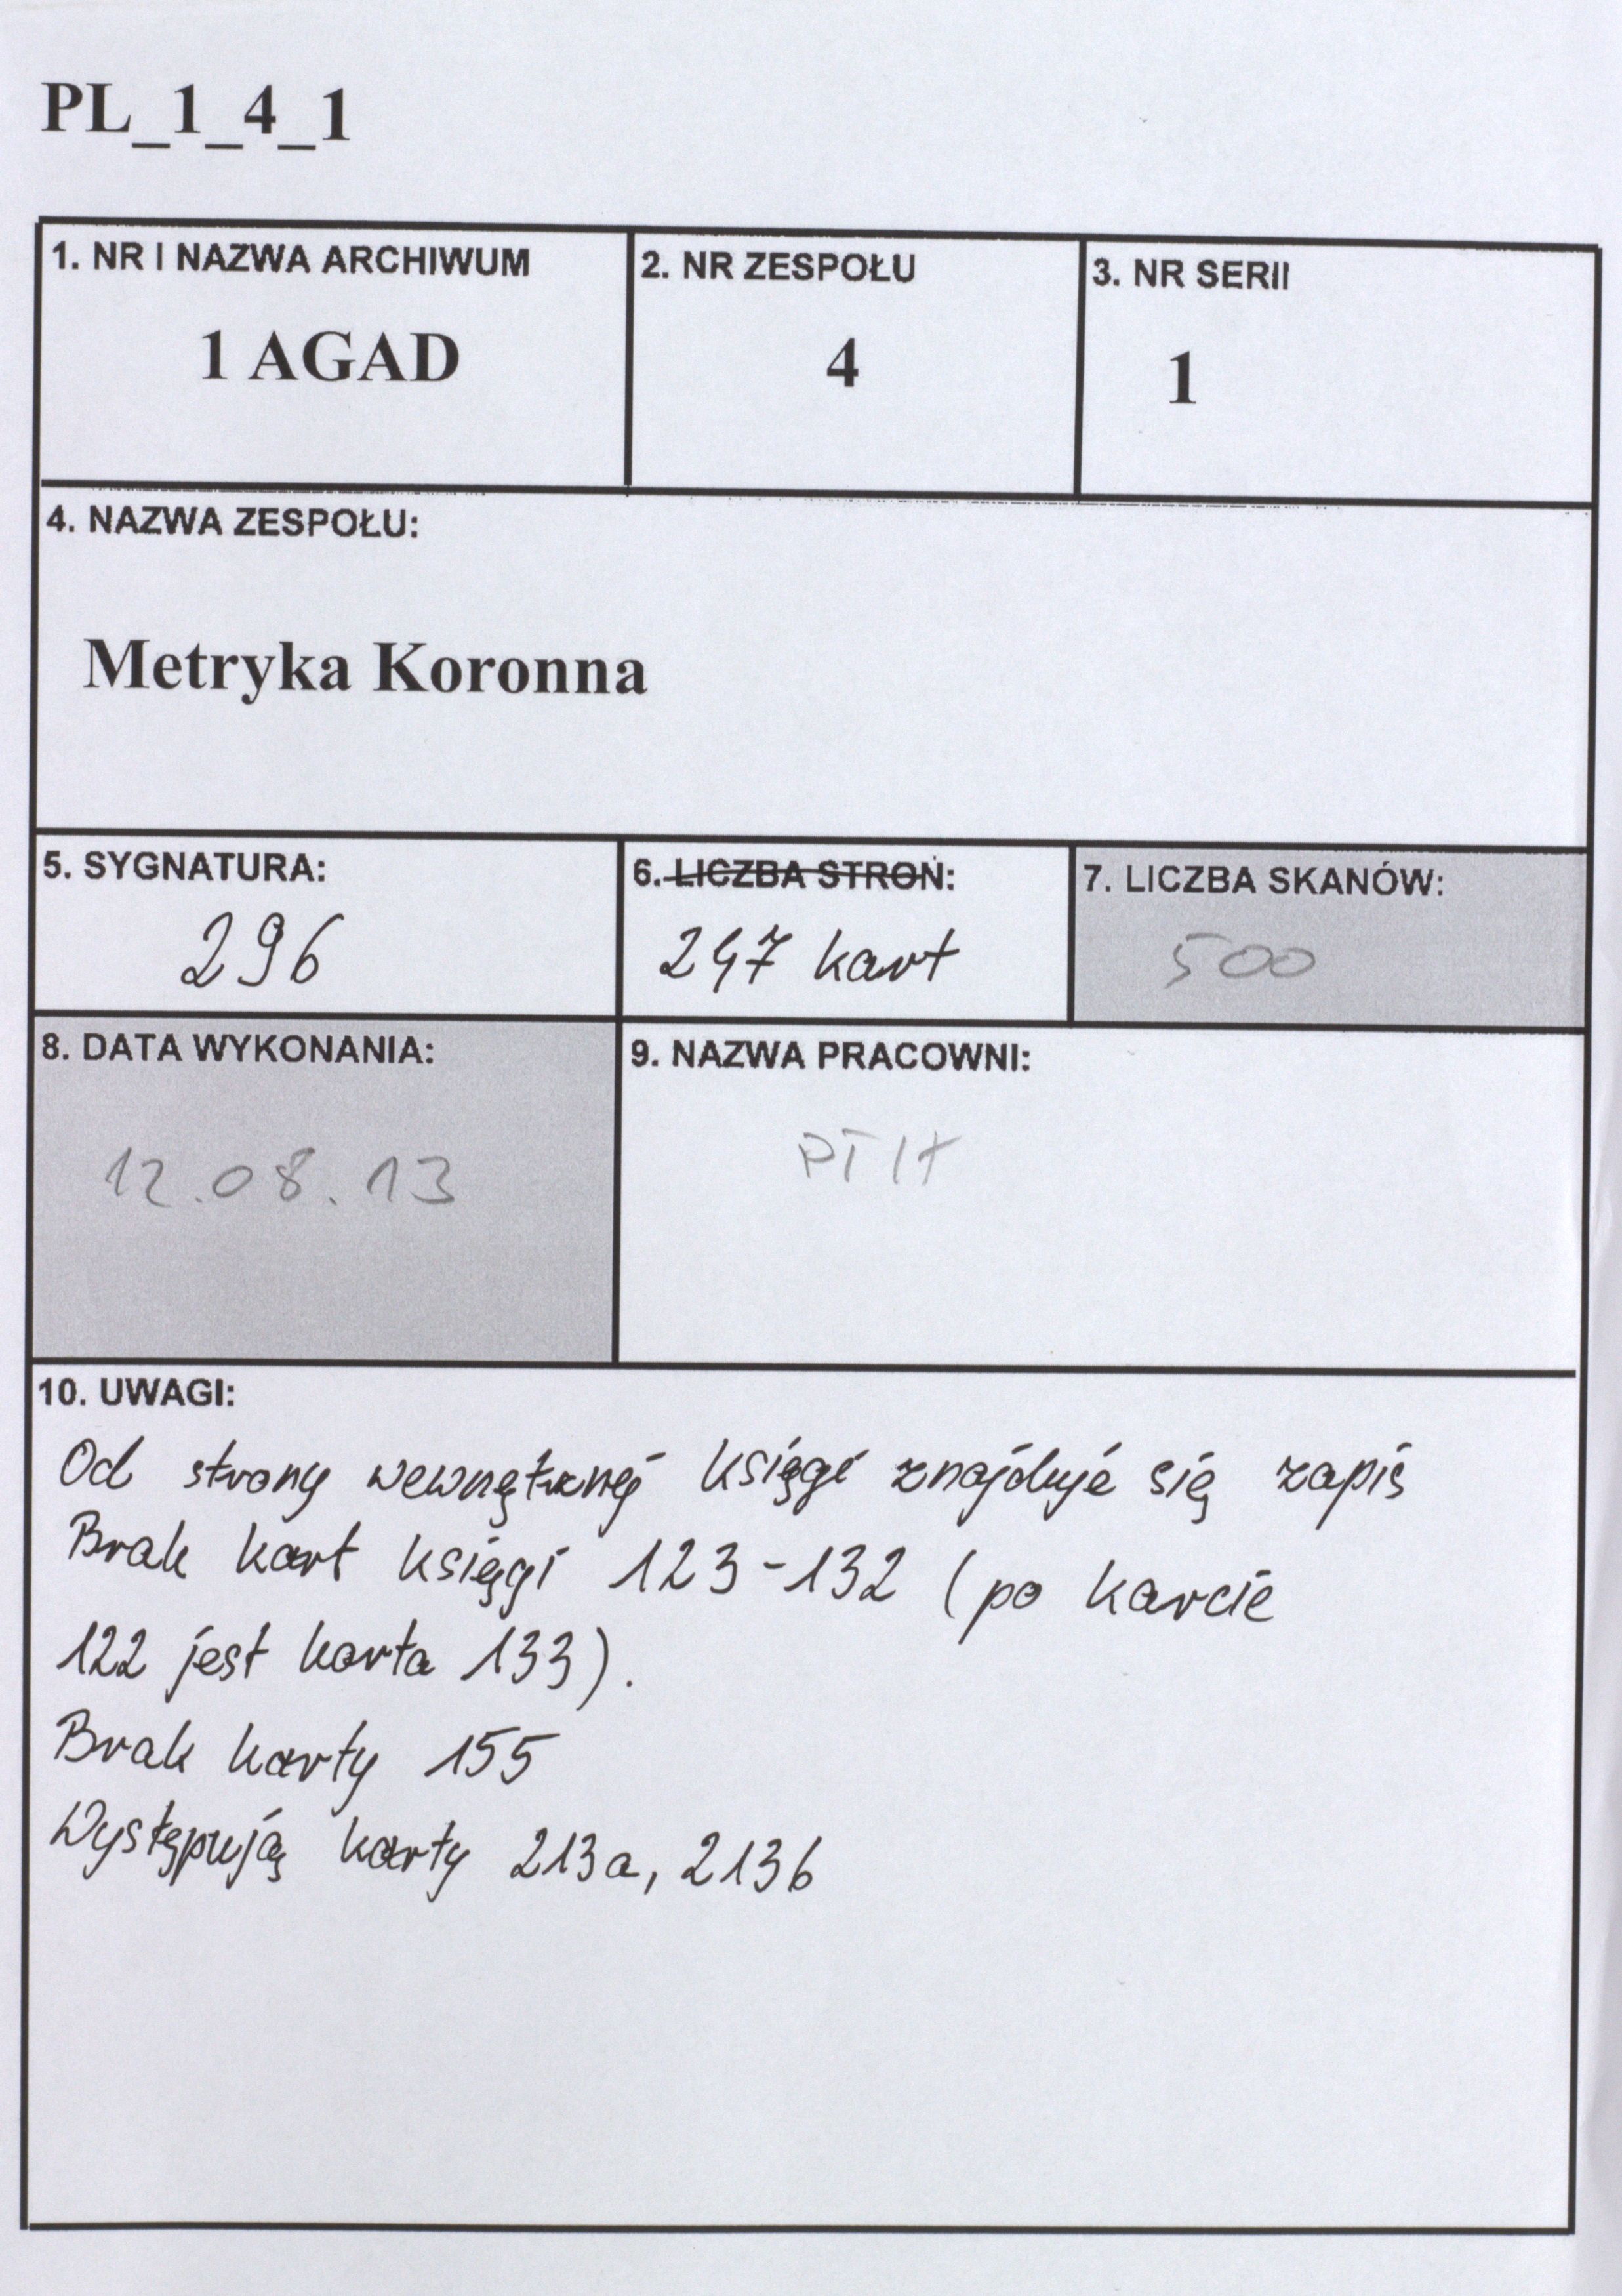 PL_1_4_1
1. NR I NAZWA ARCHIWUM
1 AGAD
2. NR ZESPOŁU
4
3. NR SERII
1
4. NAZWA ZESPOŁU:
Metryka Koronna
5. SYGNATURA:
296
6. LICZBA STRON:
247 kart
7. LICZBA SKANÓW:
500
8. DATA WYKONANIA:
12.08.13
9. NAZWA PRACOWNI:
10. UWAGI:
Od strony wewnętrznej księgi znajduje się zapis
Brak kart księgi 123-132 (po karcie
122 jest karta 133).
Brak karty 155
Występują karty 213a, 213b